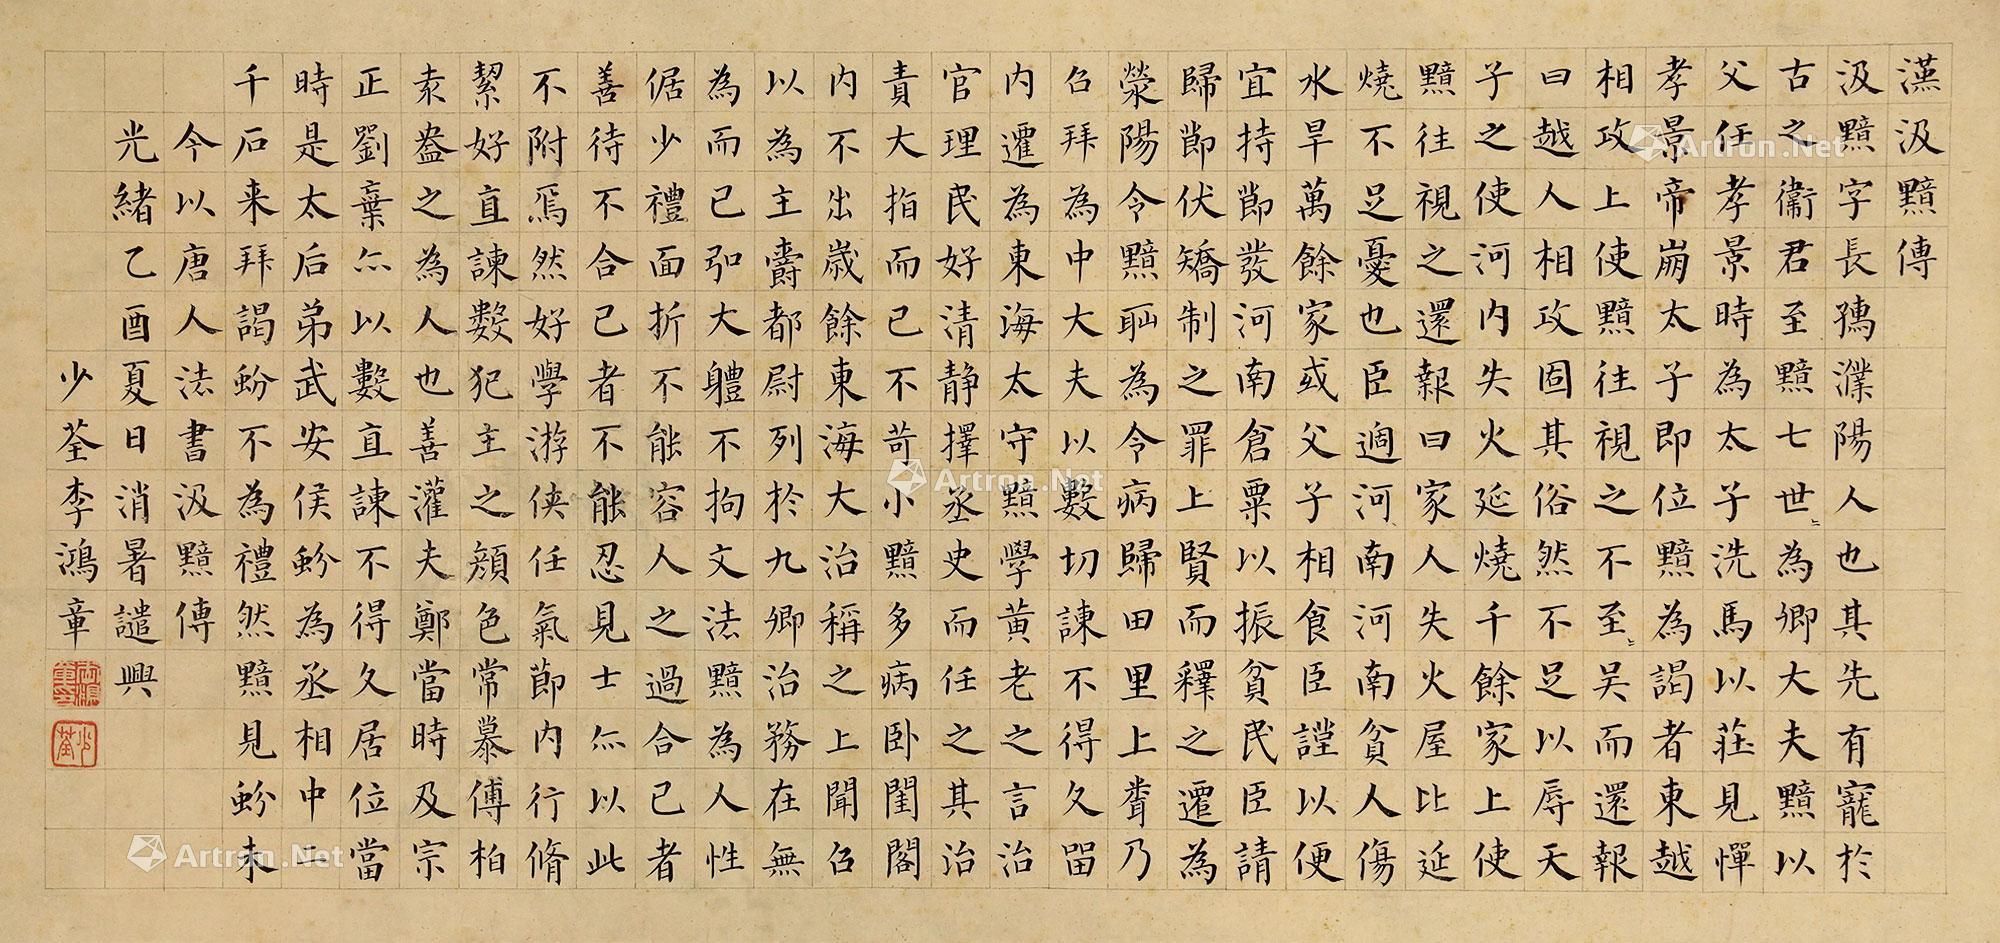 漢汲黯傳
汲黯字長孺濮陽人也其先有寵於
古之衞君至黯七世〻為卿大夫黯以
父任孝景時為太子洗馬以莊見憚
孝景帝崩太子即位黯為謁者東越
相攻上使黯往視之不至〻吳而還報
曰越人相攻固其俗然不足以辱天
子之使河内失火延燒千餘家上使
黯往視之還報曰家人失火屋比延
燒不足憂也臣過河南河南貧人傷
水旱萬餘家或父子相食臣謹以便
宜持節發河南倉粟以振貧民臣請
歸節伏矯制之罪上賢而釋之遷為
滎陽令黯恥為令病歸田里上聞乃
召拜為中大夫以數切諫不得久留
内遷為東海太守黯學黃老之言治
官理民好清静擇丞史而任之其治
責大指而已不苛小黯多病卧閨閤
内不出歲餘東海大治稱之上聞召
以為主爵都尉列於九卿治務在無
為而已弘大體不拘文法黯為人性
倨少禮面折不能容人之過合己者
善待不合己者不能忍見士亦以此
不附焉然好學游俠任氣節内行脩
絜好直諫數犯主之顏色常慕傅柏
袁盎之為人也善灌夫鄭當時及宗
正劉棄亦以數直諫不得久居位當
時是太后弟武安侯蚡為丞相中二
千石来拜謁蚡不為禮然黯見蚡未
今以唐人法書汲黯傳
光緒乙酉夏日消暑譴興
少荃李鴻章
李鴻章印
少荃
Artron.Net
Artron.Net
Artron.Net